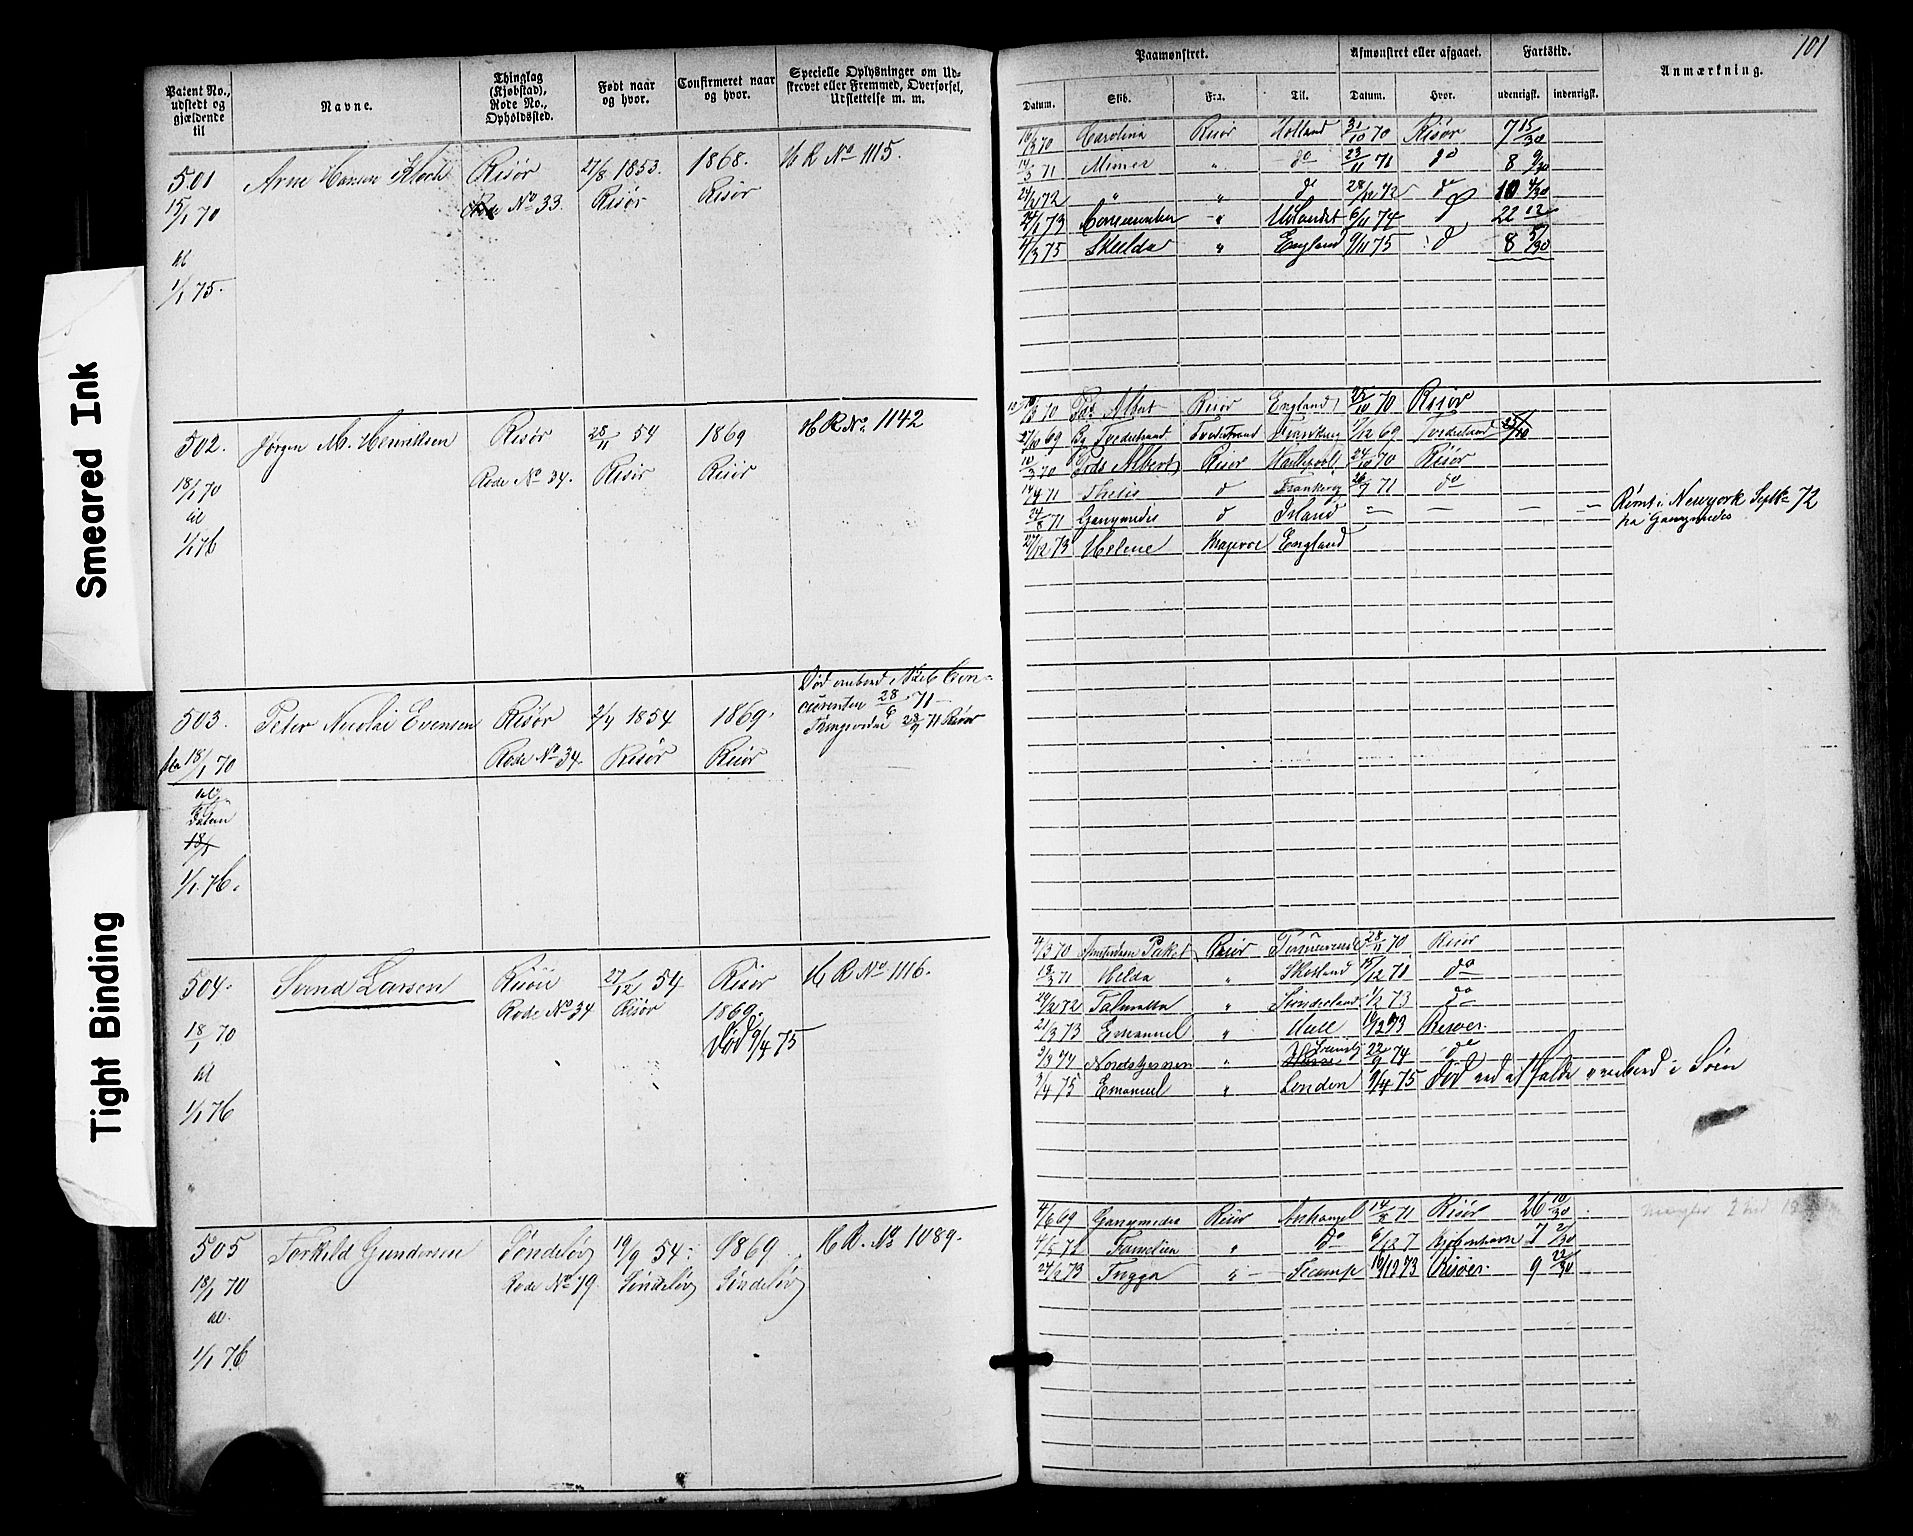 101
Patent No., udstedt og gjældende til
Navne.
Thinglag (Kjøbstad), Rode No., Opholdssted.
Født naar og hvor.
Confirmeret naar og hvor.
Specielle Oplysninger om Udskrevet eller Fremmed, Overførsel, Udslettelse m. m.
Paamønstret.
Afmønstret eller afgaaet.
Fartstid.
Anmærkning.
Datum.
Skib.
Fra.
Til.
Datum.
Hvor.
udenrigsk.
indenrigsk.
501
15/1 70
til
1/1 75.
Arne Hansen
Risør
Rode No 33.
27/8 1853.
Risør
1868.
Risør
H R No 1115.
Carolina Risør Holland 31/10 70 Risør 7 15/30
14/3 71 Mimer " do 23/11 71 do 8 9/30
24/2 72 " " do 28/12 72 do 10 4/30
" Udlandet 6/11 74 do 22 12/30
4/3 75 Skulda " England 9/11 75 do 8 5/30
502.
18/1 70
til
1/1 76
Jørgen M. Henriksen
Risør
Rode No 34.
28/11 54
Risør
1869
Risør
H R No. 1142
Albert Risør England 25/10 70 Risør
69 Tvedestrand Tvedestrand 1/12 69 Tvedestrand
10/3 70 Prds Albert Risør Hartlepool 24/10 70 Risør
14/4 71 Thetis do 71 do
24/8 71 Ganymedes do Irland
27/12 73 Helene England
Rømt i Newyork Septbr 72
fra Ganymedes
503.
fra 18/1 70
til
1/1 76.
Peter Nicolai Evensen
Risør
Rode No 34.
2/4 1854
Risør
1869.
Risør
Død ombord i
28/6 71
71 Risør
504.
18/1 70
til
1/1 76
Svend Larsen
Risør
Rode No 34
27/12 54
Risør
Risør
1869.
Død 9/4 75
H R No 1116.
4/3 70 Paket Risør 28/11 70 Risør
71 Hilda " Shetland 15/12 71 do
72 " Sunderland 1/2 73 do
21/3 73 Emanuel " Hull Risøer.
Nordstjernen " 22/9 74 do
3/4 75 Emanuel " London 9/4 75 Død ved at falde overbord i Søen
505
18/1 70
til
1/1 76
Torkild Gundersen
Søndeløv
Rode No 79.
19/9 54.
Søndeløv
1869.
Søndeløv
H R. No. 1089.
4/6 69 Ganymedes Risør 14/ 71 Risør 26 10/30
4/5 71 Familien " do Kjøbenhavn 7 2/30
24/2 73 Frygga " 73 Risøer. 9 22/30
mangler
Smeared Ink
Tight Binding